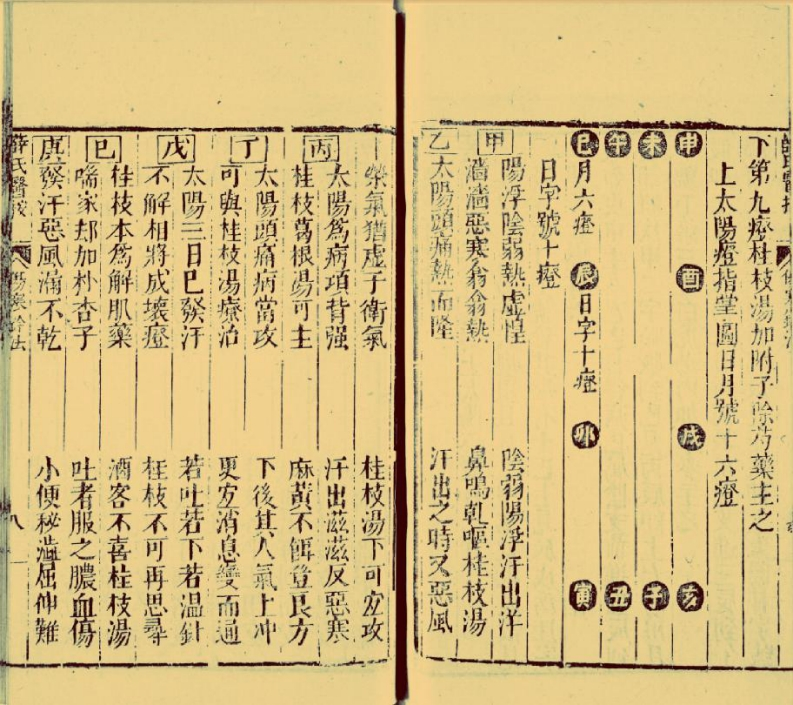 下第九證桂枝湯加附子除芍藥主之
上太陽證指掌圖日月號十六證
申 酉 戌 亥
未 子
午 丑
巳 月六證 辰 日字十證 卯 寅
日字號十證
甲
陽浮陰弱熱虛惶 陰弱陽浮汗出洋
濇濇惡寒翕翕熱 鼻鳴乾嘔桂枝湯
乙
太陽頭痛熱而隆 汗出之時又惡風
榮氣猶虛于衛氣 桂枝湯下可宜攻
丙
太陽爲病項背强 汗出滋滋反惡寒
桂枝葛根湯可主 麻黃不餌登良方
丁
太陽頭痛病當攻 下後其人氣上冲
可與桂枝湯療治 更宜消息變而通
戊
太陽三日已發汗 若吐若下若温針
不解相將成壞證 桂枝不可再思尋
己
桂枝本爲解肌藥 酒客不喜桂枝湯
喘家却加朴杏子 吐者服之膿血傷
庚
發汗惡風漏不乾 小便秘澁屈伸難
薛氏醫按 傷寒鈐法 八